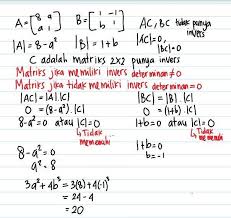 A = [8 a a 1] B = [1 -1 b 1] AC, BC tidak punya invers
|A| = 8 - a² |B| = 1 + b |AC| = 0, |BC| = 0
C adalah matriks 2x2 punya invers
Matriks jika memiliki invers determinan ≠ 0
Matriks jika tidak memiliki invers determinan = 0
|AC| = |A|.|C| |BC| = |B|.|C|
0 = (8-a²).|C| 0 = (1+b).|C|
8-a² = 0 atau |C| = 0 1+b = 0 atau |C| = 0
↳ Tidak memenuhi ↳ Tidak memenuhi
8 - a² = 0 1+b = 0
a² = 8 b = -1
3a² + 4b³ = 3(8) + 4(-1)³
= 24 - 4
= 20